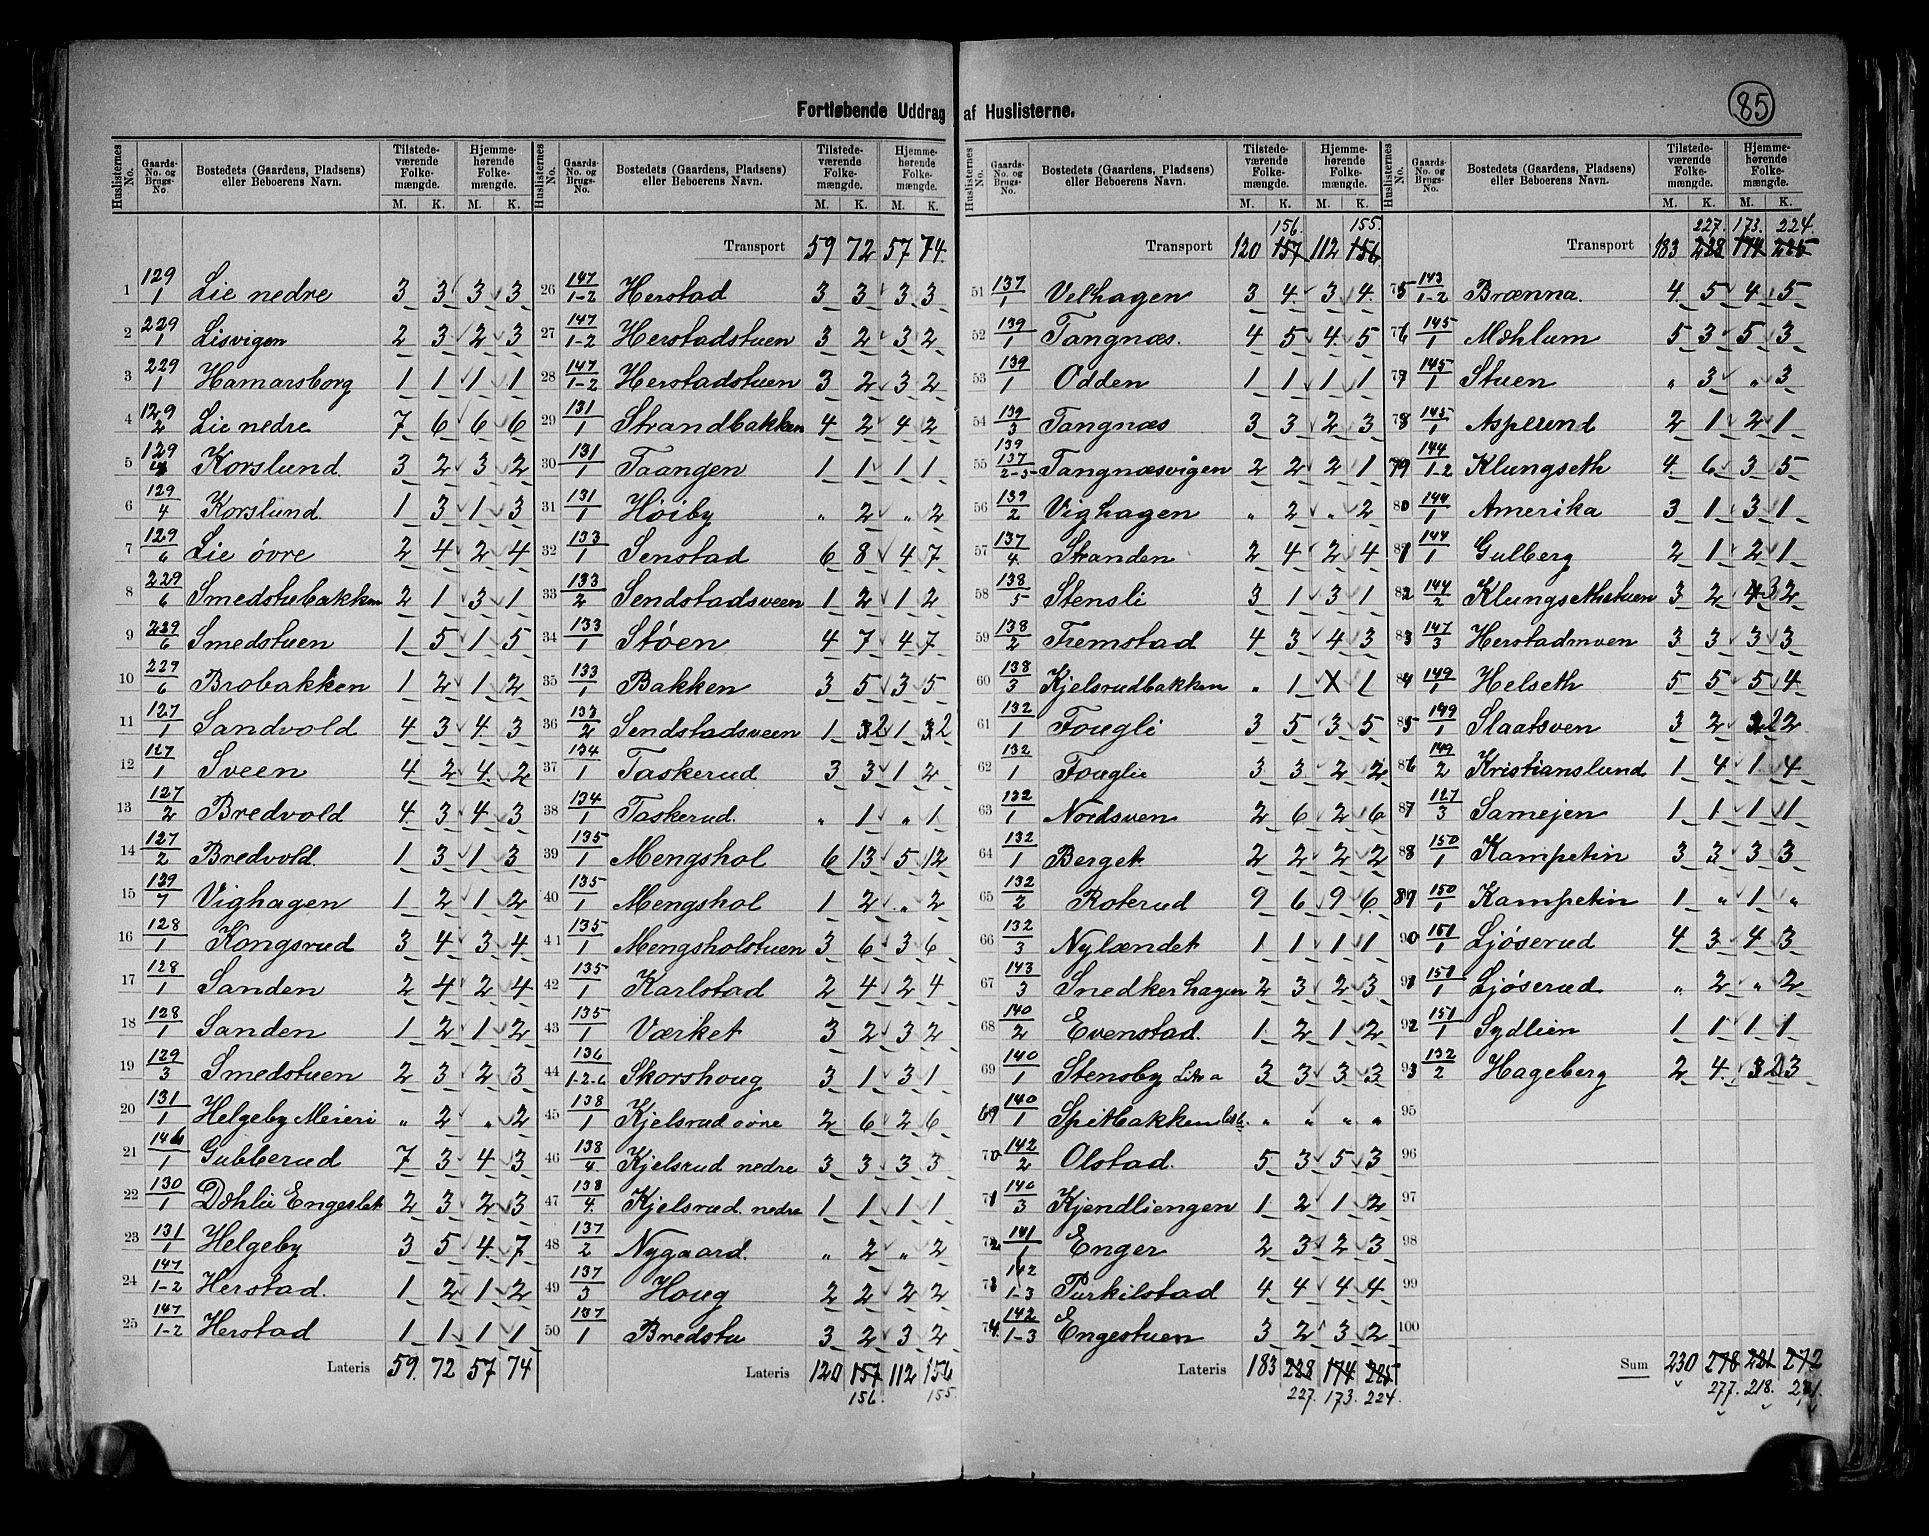 Fortløbende Uddrag af Huslisterne.
85
Huslisternes No. Gaards-No. og Brugs-No. Bostedets (Gaardens, Pladsens) eller Beboerens Navn. Tilstedeværende Folkemængde. M. K. Hjemmehørende Folkemængde. M. K.
1 129/1 Lie nedre 3 3 3 3
2 229/1 Lisvigen 2 3 2 3
3 229/1 Hamarsborg 1 1 1 1
4 129/2 Lie nedre 7 6 6 6
5 129/4 Korslund 3 2 3 2
6 129/4 Korslund 1 3 1 3
7 129/6 Lie övre 2 4 2 4
8 229/6 Smedstubakken 2 1 3 1
9 229/6 Smedstuen 1 5 1 5
10 229/6 Brobakken 1 2 1 2
11 127/1 Sandvold 4 3 4 3
12 127/1 Sveen 4 2 4 2
13 127/2 Bredvold 4 3 4 3
14 127/2 Bredvold 1 3 1 3
15 139/7 Vighagen 1 2 1 2
16 128/1 Kongsrud 3 4 3 4
17 128/1 Sanden 2 4 2 4
18 128/1 Sanden 1 2 1 2
19 129/3 Smedstuen 2 3 2 3
20 131/1 Helgeby Meieri " 2 " 2
21 146/1 Gubberud 7 3 4 3
22 130/1 Döhlie Engeslet 2 3 2 3
23 131/1 Helgeby 3 5 4 7
24 147/1-2 Herstad 1 2 1 2
25 147/1-2 Herstad 1 1 1 1
Lateris 59 72 57 74
Huslisternes No. Gaards-No. og Brugs-No. Bostedets (Gaardens, Pladsens) eller Beboerens Navn. Tilstedeværende Folkemængde. M. K. Hjemmehørende Folkemængde. M. K.
Transport 59 72 57 74
26 147/1-2 Herstad 3 3 3 3
27 147/1-2 Herstadstuen 3 2 3 2
28 147/1-2 Herstadstuen 3 2 3 2
29 131/1 Strandbakken 4 2 4 2
30 131/1 Taangen 1 1 1 1
31 131/1 Höiby " 2 " 2
32 133/1 Senstad 6 8 4 7
33 133/2 Sendstadsveen 1 2 1 2
34 133/1 Støen 4 7 4 7
35 133/1 Bakken 3 5 3 5
36 133/2 Sendstadsveen 1 3 2 1 3 2
37 134/1 Taskerud 3 3 1 2
38 134/1 Taskerud " 1 " 1
39 135/1 Mengshol 6 13 5 12
40 135/1 Mengshol 1 2 " 2
41 135/1 Mengsholstuen 3 6 3 6
42 135/1 Karlstad 2 4 2 4
43 135/1 Værket 3 2 3 2
44 136/1-2-6 Skorshoug 3 1 3 1
45 138/1 Kjelsrud övre 2 6 2 6
46 138/4 Kjelsrud nedre 3 3 3 3
47 138/4 Kjelsrud nedre 1 1 1 1
48 137/2 Nygaard " 2 " 2
49 137/3 Houg 2 2 2 2
50 137/1 Bredstu 3 2 3 2
Lateris 120 157 112 156
156. 155.
Huslisternes No. Gaards-No. og Brugs-No. Bostedets (Gaardens, Pladsens) eller Beboerens Navn. Tilstedeværende Folkemængde. M. K. Hjemmehørende Folkemængde. M. K.
156. 155.
Transport 120 157 112 156
51 137/1 Velhagen 3 4 3 4
52 139/1 Tangnæs 4 5 4 5
53 139/1 Odden 1 1 1 1
54 139/3 Tangnæs 3 3 2 3
55 139 137/2-5 Tangnæsvigen 2 2 2 1
56 139/2 Vighagen " 2 " 2
57 137/4 Stranden 2 4 2 4
58 138/5 Stensli 3 1 3 1
59 138/2 Fremstad 4 3 4 3
60 138/3 Kjelsrudbakken " 1 X 1
61 132/1 Fougli 3 5 3 5
62 132/1 Fouglie 3 3 2 2
63 132/1 Nordsven 2 6 2 6
64 132/1 Berget 2 2 2 2
65 132/2 Roterud 9 6 9 6
66 132/3 Nylændet 1 1 1 1
67 143/3 Snedkerhagen 2 3 2 3
68 140/2 Evenstad 1 2 1 2
69 140/1 Stensby Litr a 3 3 3 3
69 140/1 Spitbakken Lit b. " " " "
70 142/2 Olstad 5 3 5 3
71 140/3 Kjendliengen 1 2 1 2
72 141/1 Enger 2 3 2 3
73 142/1-3 Turkilstad 4 4 4 4
74 142/1-3 Engestuen 3 2 3 2
Lateris 183 228 174 225
227. 173. 224.
Huslisternes No. Gaards-No. og Brugs-No. Bostedets (Gaardens, Pladsens) eller Beboerens Navn. Tilstedeværende Folkemængde. M. K. Hjemmehørende Folkemængde. M. K.
227. 173. 224.
Transport 183 228 174 225
75 143/1-2 Brænna 4 5 4 5
76 145/1 Mæhlum 5 3 5 3
77 145/1 Stuen " 3 " 3
78 145/1 Asperud 2 1 2 1
79 144/1-2 Klungseth 4 6 3 5
80 144/1 Amerika 3 1 3 1
81 144/1 Gulberg 2 1 2 1
82 144/2 Klungsethstuen 3 2 4 3 2
83 147/3 Herstadmoen 3 3 3 3
84 149/1 Helseth 5 5 5 4
85 149/1 Slaatsven 3 2 3 2 2
86 149/2 Kristianslund 1 4 1 4
87 127/3 Samejen 1 1 1 1
88 150/1 Kampetin 3 3 3 3
89 150/1 Kampetin 1 " 1 "
90 151/1 Ljöserud 4 3 4 3
91 151/1 Ljöserud " 2 " 2
92 151/1 Sydlien 1 1 1 1
93 132/2 Hageberg 2 4 3 2 3
95
96
97
98
99
100
Sum 230 278 221 272
277. 218. 271.